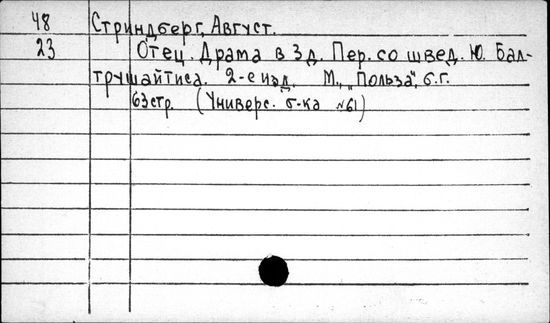 48 Стриндберг, Август.
23 Отец. Драма в 3 д. Пер. со швед. Ю. Бал-
трушайтиса. 2-е изд. М., "Польза", б.г.
63 стр. (Универс. б-ка №61)